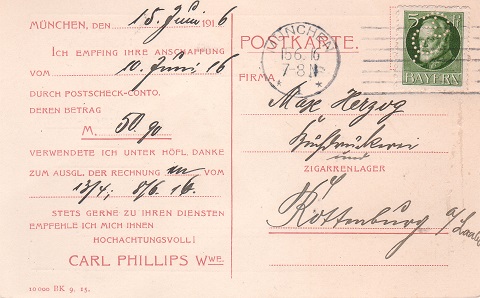 MÜNCHEN, den 15. Juni 1916
Ich empfing Ihre Anschaffung
vom 10. Juni 16
durch Postscheck-Conto.
deren Betrag
M. 50.90
verwendete ich unter höfl. Danke
zum Ausgl. der Rechnung vom
13/4; 8/6. 16.
Stets gerne zu Ihren Diensten
empfehle ich mich Ihnen
Hochachtungsvoll!
CARL PHILLIPS Wwe.
10000 BK 9. 15.
POSTKARTE.
MÜNCHEN
15.6.16
7-8 N
5
BAYERN
FIRMA
Max Herzog
Buchdruckerei
und
ZIGARRENLAGER
Rottenburg a/Laaber